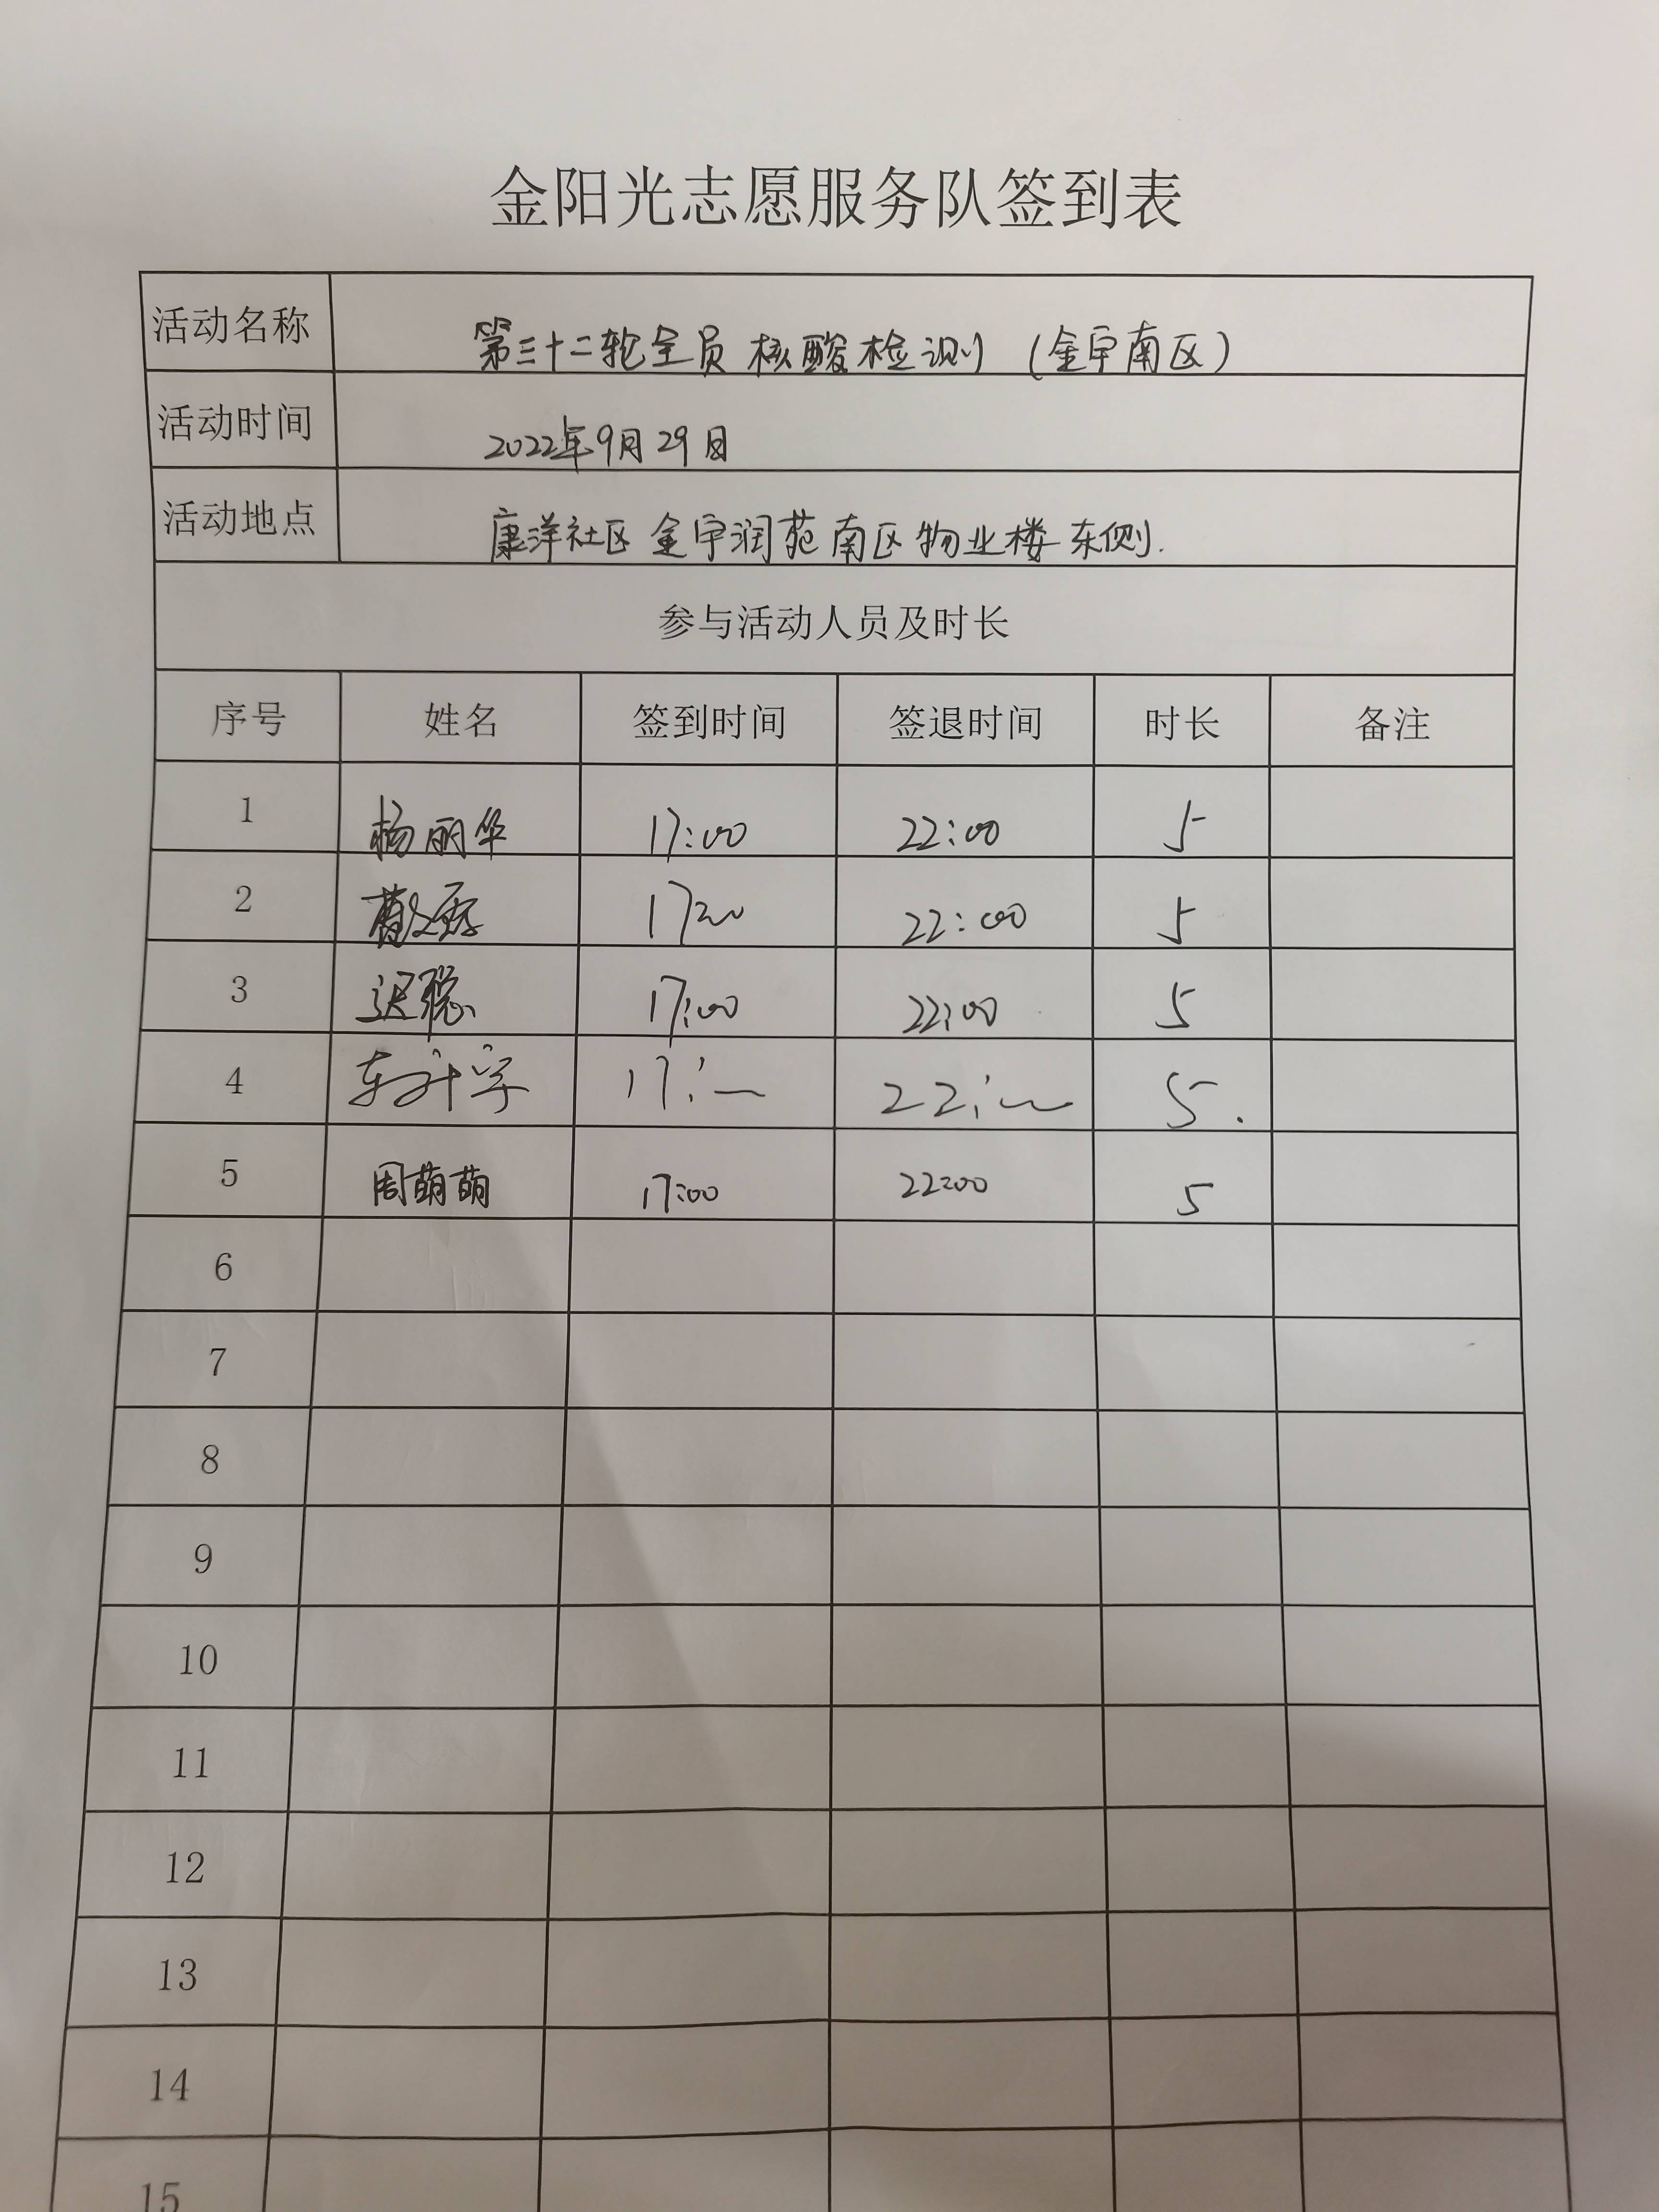 金阳光志愿服务队签到表
活动名称 第三十二轮全员核酸检测（金宇南区）
活动时间 2022年9月29日
活动地点 康洋社区金宇润苑南区物业楼东侧.
参与活动人员及时长
序号 姓名 签到时间 签退时间 时长 备注
1 杨丽华 17:00 22:00 5
2 22:00 5
3 迟聪 17:00 22:00 5
4 5.
5 周萌萌 17:00 22:00 5
6
7
8
9
10
11
12
13
14
15